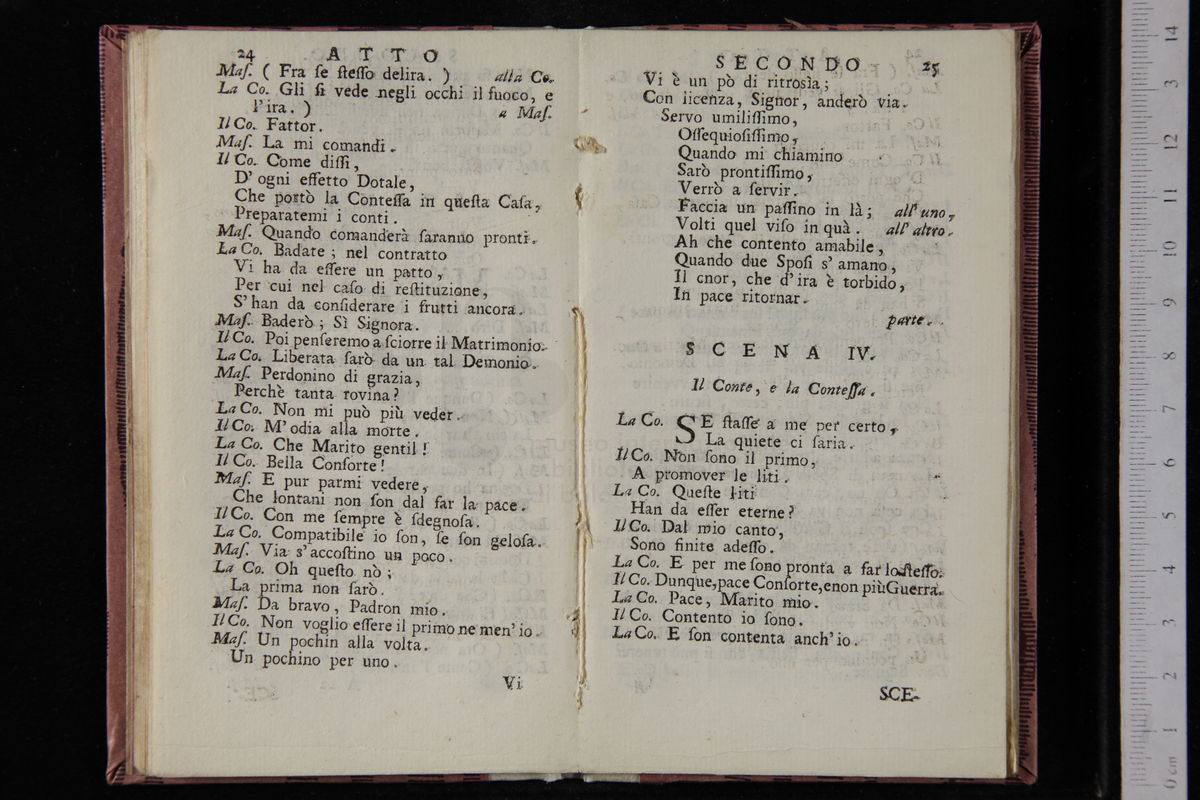 24 ATTO
Maſ. ( Fra ſe ſteſſo delira. ) alla Co.
La Co. Gli ſi vede negli occhi il fuoco, e
l'ira. ) a Maſ.
Il Co. Fattor.
Maſ. La mi comandi.
Il Co. Come diſſi,
D' ogni effetto Dotale,
Che portò la Conteſſa in queſta Caſa,
Preparatemi i conti.
Maſ. Quando comanderà ſaranno pronti.
La Co. Badate; nel contratto
Vi ha da eſſere un patto,
Per cui nel caſo di reſtituzione,
S' han da conſiderare i frutti ancora.
Maſ. Baderò; Sì Signora.
Il Co. Poi penſeremo a ſciorre il Matrimonio.
La Co. Liberata ſarò da un tal Demonio.
Maſ. Perdonino di grazia,
Perchè tanta rovina?
La Co. Non mi può più veder.
Il Co. M' odia alla morte.
La Co. Che Marito gentil!
Il Co. Bella Conſorte!
Maſ. E pur parmi vedere,
Che lontani non ſon dal far la pace.
Il Co. Con me ſempre è ſdegnoſa.
La Co. Compatibile io ſon, ſe ſon geloſa.
Maſ. Via s' accoſtino un poco.
La Co. Oh queſto nò;
La prima non ſarò.
Maſ. Da bravo, Padron mio.
Il Co. Non voglio eſſere il primo ne men' io.
Maſ. Un pochin alla volta.
Un pochino per uno.
Vi
SECONDO 25
Vi è un pò di ritrosìa;
Con licenza, Signor, anderò via.
Servo umiliſſimo,
Oſſequioſiſſimo,
Quando mi chiamino
Sarò prontiſſimo,
Verrò a ſervir.
Faccia un paſſino in là; all' uno,
Volti quel viſo in quà. all' altro.
Ah che contento amabile,
Quando due Spoſi s' amano,
Il cnor, che d' ira è torbido,
In pace ritornar.
parte.
SCENA IV.
Il Conte, e la Conteſſa.
La Co. SE ſtaſſe a me per certo,
La quiete ci ſaria.
Il Co. Non ſono il primo,
A promover le liti.
La Co. Queſte liti
Han da eſſer eterne?
Il Co. Dal mio canto,
Sono finite adeſſo.
La Co. E per me ſono pronta a far lo ſteſſo.
Il Co. Dunque, pace Conſorte, e non più Guerra.
La Co. Pace, Marito mio.
Il Co. Contento io ſono.
La Co. E ſon contenta anch' io.
SCE-
0 cm 1 2 3 4 5 6 7 8 9 10 11 12 13 14